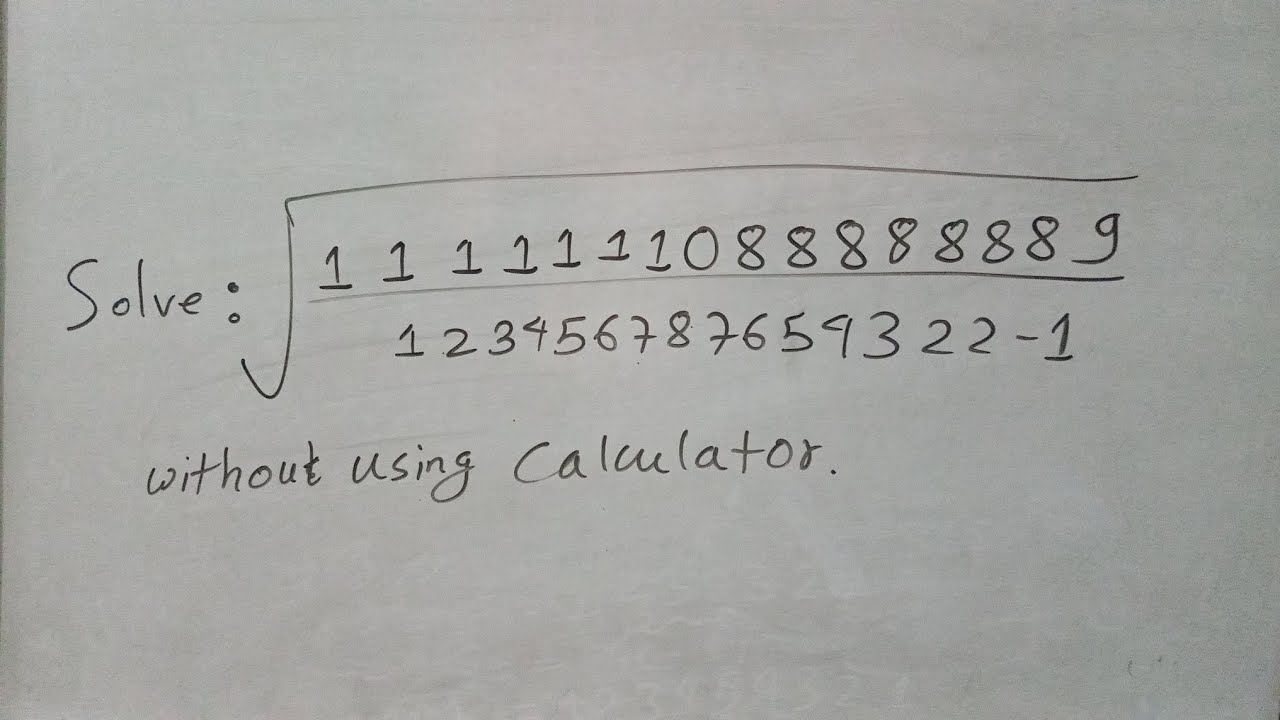 Solve: √ 1111111088888889
123456787654322-1
without using Calculator.